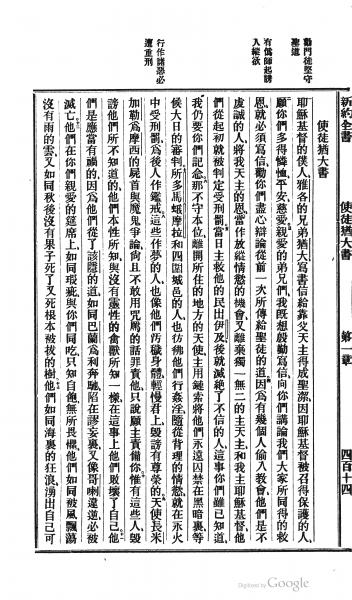 新約全書 使徒猶大書 第一章 四百十四
使徒猶大書
勸門徒堅守
聖道
有僞師起誘
人縱欲
行作諸惡必
遭重刑
耶穌基督的僕人雅各的兄弟猶大寫書信給靠父天主得成聖潔因耶穌基督被召得保護的人
願你們多得憐恤平安慈愛親愛的弟兄們我旣想殷勤寫信向你們講論我們大家所同得的救
恩就必須寫信勸你們盡心辯論從前一次所傳給聖徒的道因爲有幾個人偷入教會他們是不
虔誠的人將我天主的恩當作放縱情慾的機會又離棄獨一無二的主天主和我主耶穌基督他
們從起初就被判定受刑罰當日主救他的民出伊及後就滅絕了不信的人這事你們雖已知道
我仍要你們記念那不守本位離開所住的地方的天使主用鏈索將他們永遠囚禁在黑暗裏等
候大日的審判所多馬蛾摩拉和四圍城邑的人也彷彿他們行姦淫隨從背理的情慾就在永火
中受刑罰爲後人作鑑戒這些作夢的人也像他們汚穢身體輕慢君上毀謗有尊榮的天使長米
加勒爲摩西的屍首與魔鬼爭論尙且不敢用咒罵的話罪責他只說願主責備你惟有這些人毀
謗他們所不知道的他們本性所知與沒有靈性的禽獸所知一樣在這事上他們敗壞了自己他
們是應當有禍的因爲他們從了該隱的道如同巴蘭爲利奔馳陷在謬妄裏又像哥喇違逆必被
滅亡他們在你們親愛的筵席上如同瑕疵與你們同吃只知自飽無所畏懼他們如同被風飄蕩
沒有雨的雲又如同秋後沒有果子死了又死根本被拔的樹他們如同海裏的狂浪湧出自己可
Digitized by Google